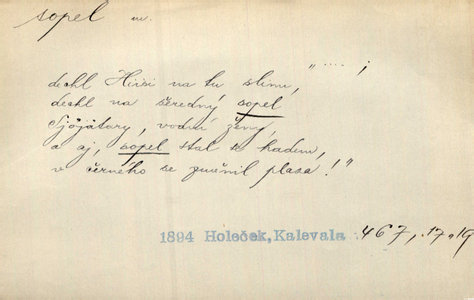 sopel m.
„ ..... ;
dechl Hiisi na tu slinu,
dechl na šeredný sopel
Sjöjätary, vodní ženy,
a aj, sopel stal se hadem,
v černého se změnil plaza!"
1894 Holeček, Kalevala 467, 17 a 19